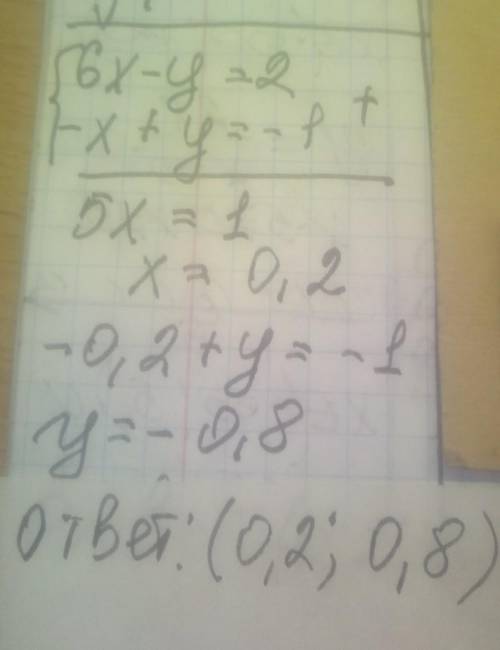 6x-y=2
-x+y=-1 +
5x=1
x=0,2
-0,2+y=-1
y=-0,8
ответ: (0,2; 0,8)